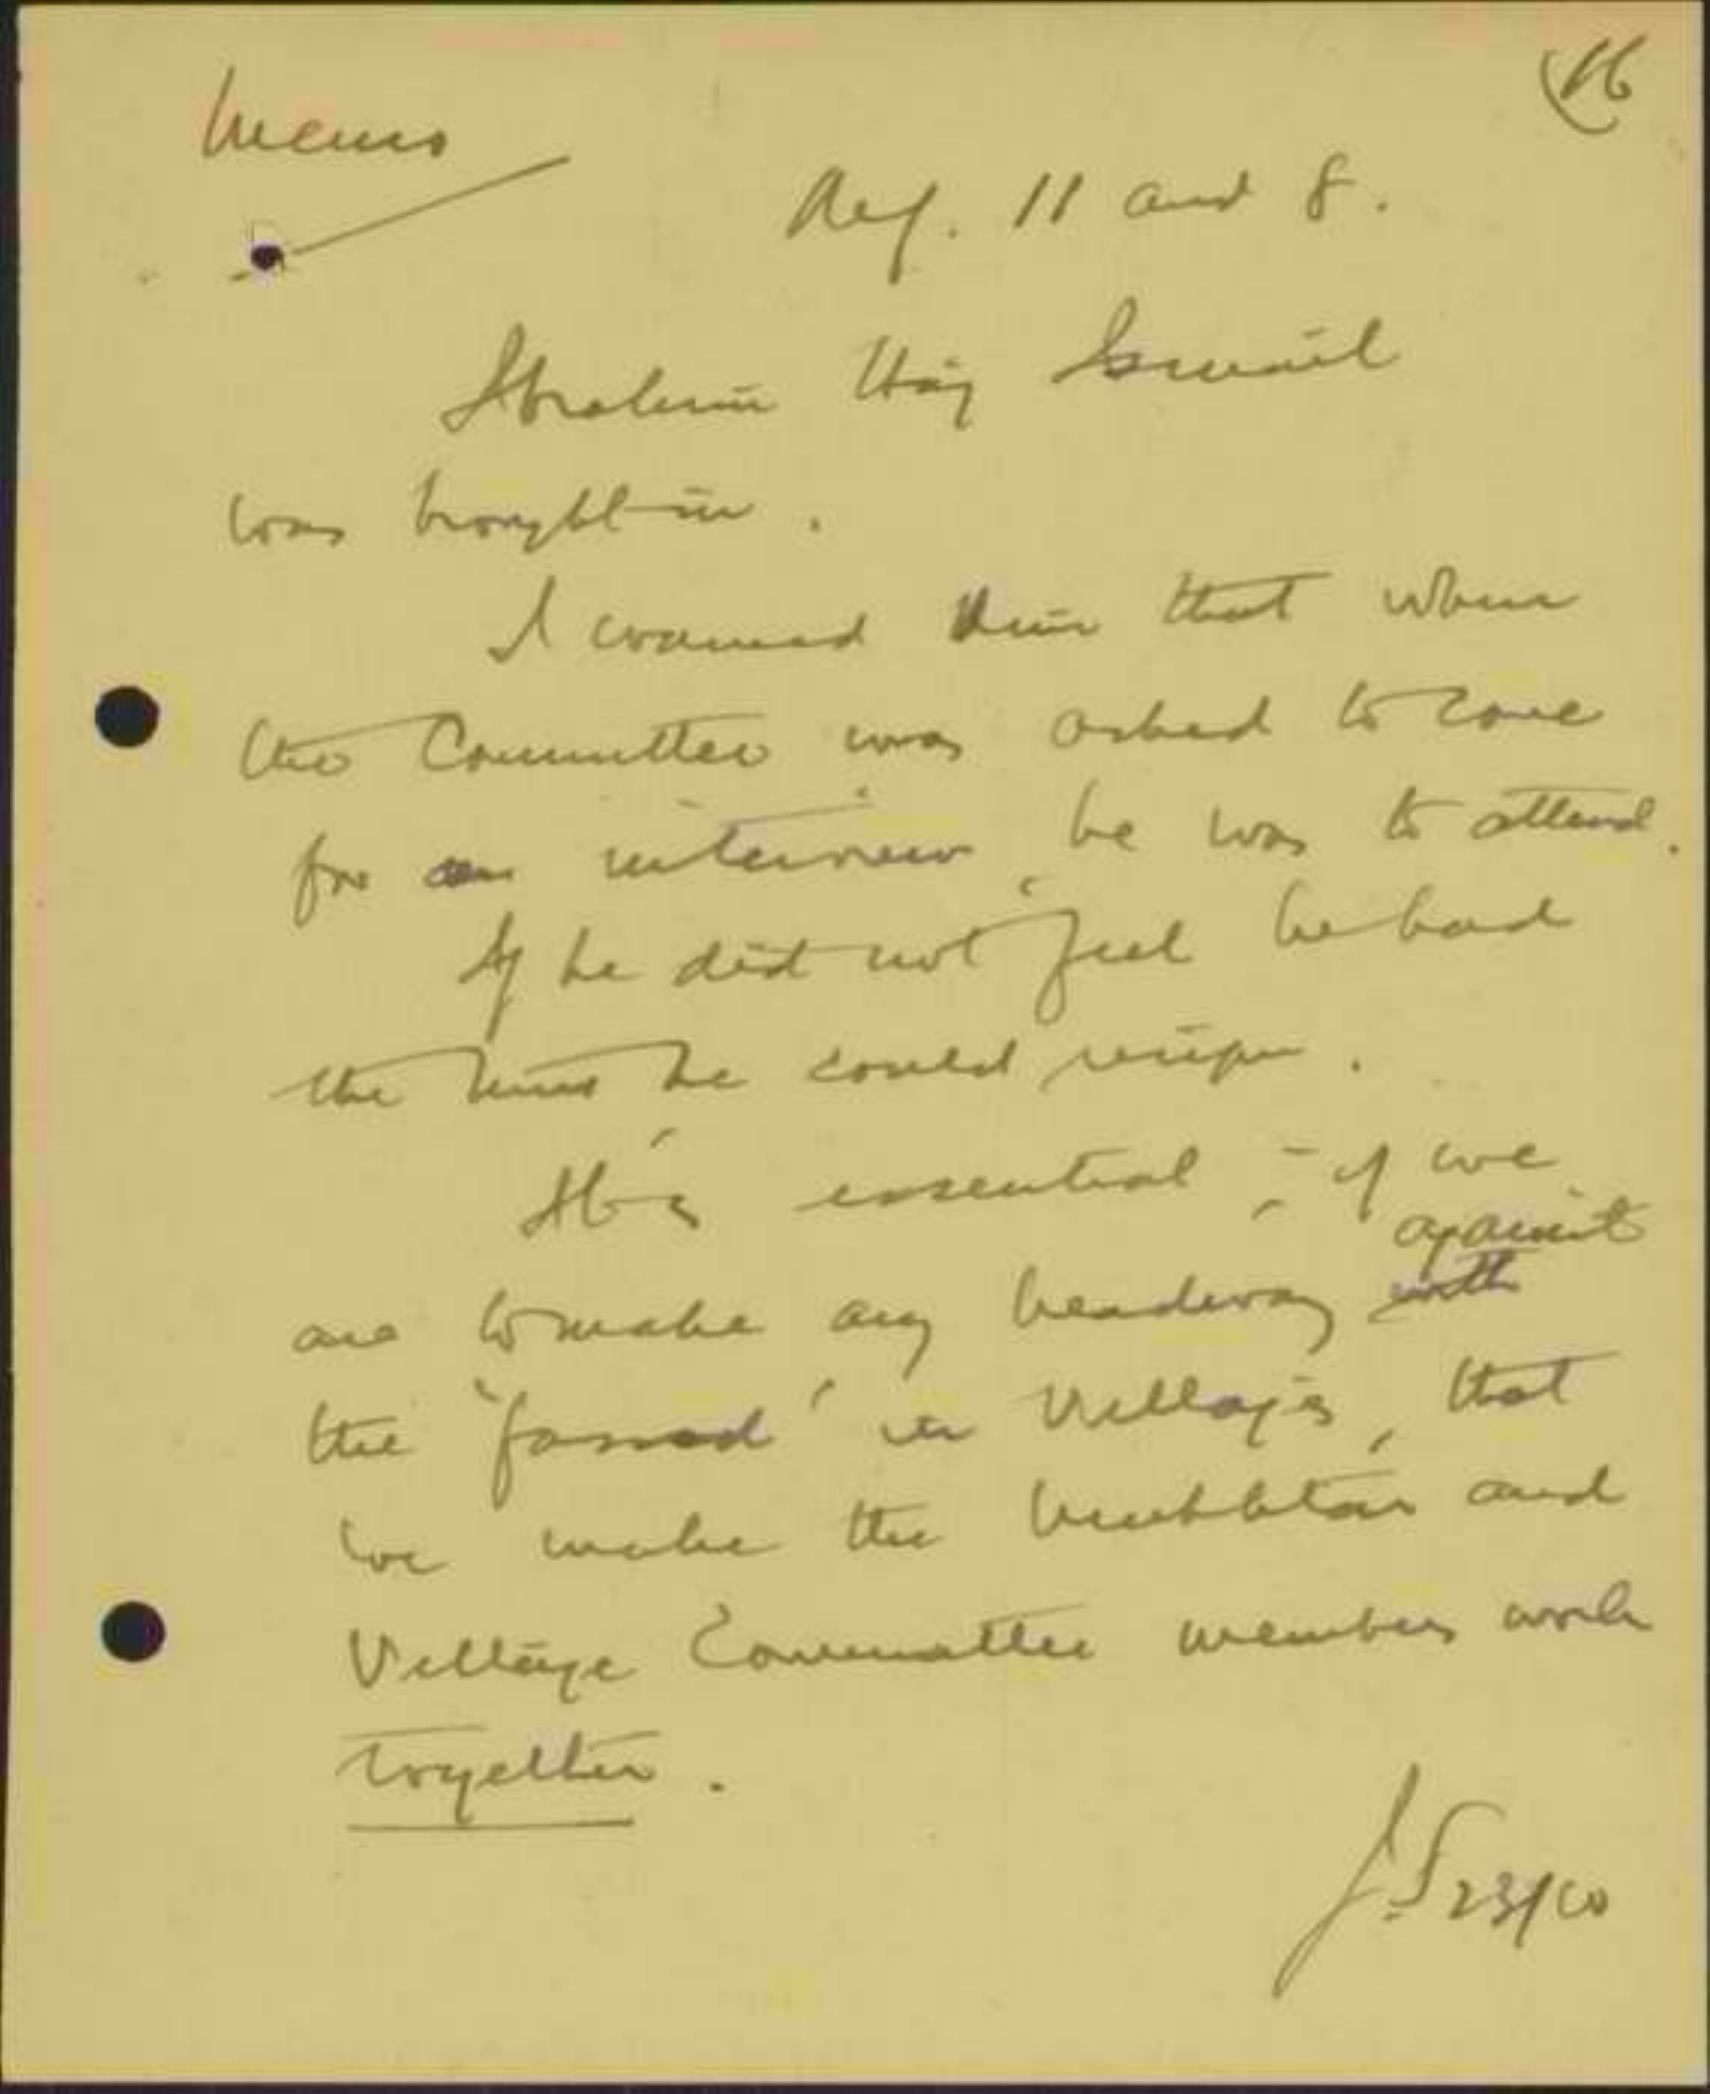 16
Memo
Ref. 11 and 8.
Ibrahim Haj Ismail
was brought in.
I warned him that when
the Committee was asked to come
for an interview, he was to attend.
If he did not feel he had
the time he could resign.
It is essential, - if we
are to make any headway with against
the 'fassad' in villages, that
we make the Mukhtar and
Village Committee members work
together.
23/10